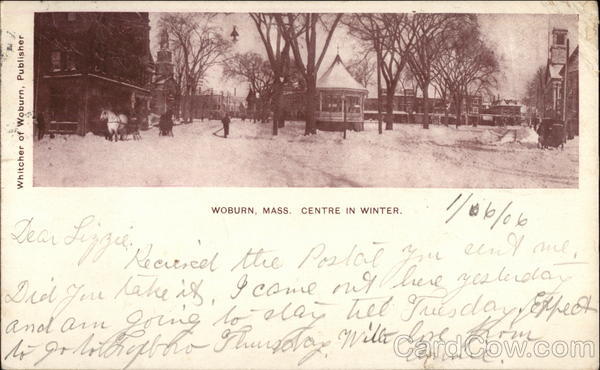 Whitcher of Woburn, Publisher
WOBURN, MASS. CENTRE IN WINTER.
1/06/06
Dear Lizzie.
Received the Postal you sent me.
Did you take it. I came out here yesterday
and am going to stay till Tuesday. Expect
to go to Thursday. With love from
CardCow.com